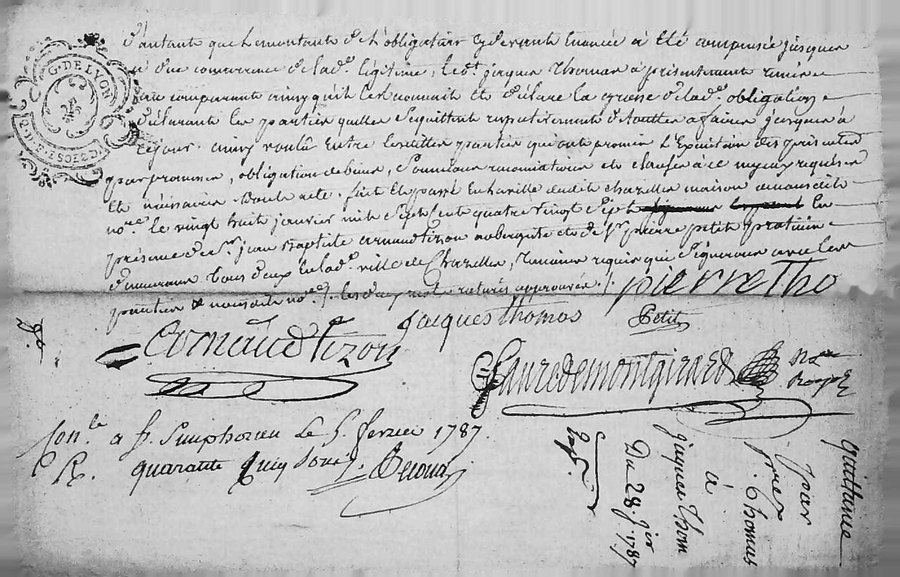 G. DE LYON
d'autante que le montante de l'obligation cydevante énancée a été compensée jusques
a due concurrance de lad. légitime, led. jacques Thomas a présentement remis
au comparante ainsy qu'il le reconnait et déclare la grosse de lad. obligation
déclarante les parties quelles s'equittent respectivement de toutes affaires jusques à
ce jour. ainsy voulu entre lesdittes parties qui ont promis l'exécution des présentes
par promesse, obligation de biens, soumissions renonciations et clauses à ce requises
et nécéssaires dont acte. fait et passé en la ville dudit chazelles maison de nousdit
no.re le vingt huit janvier mil sept cent quatre vingt sept en
présence de sr. jean Baptiste arnaud tizon aubergiste et de sr. pierre petit praticien
demeurans tous deux en lad. ville de Chazelles, témoins requis qui signerons avec les
parties et nousdit no.re les deux mots raturés approuvés
pierre tho
jacques thomas
Petit
arnaud tizon
faure de montgirard
Con.lé a S. Simphorien le 5. fevrier 1787.
R. quarante cinq sous
Quittance
par
pierre Thomas
à
jacques Thom
Du 28. j.er 1787